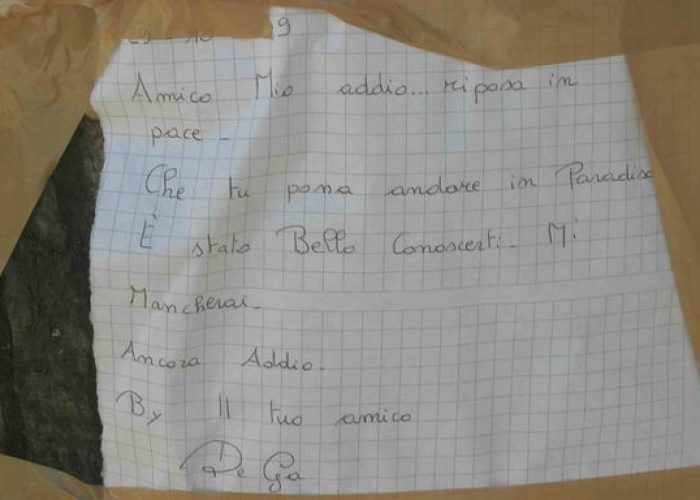 9
Amico Mio addio... riposa in
pace -
Che tu possa andare in Paradiso
È stato Bello Conoscerti - Mi
Mancherai -
Ancora Addio -
By Il tuo amico
De Ga